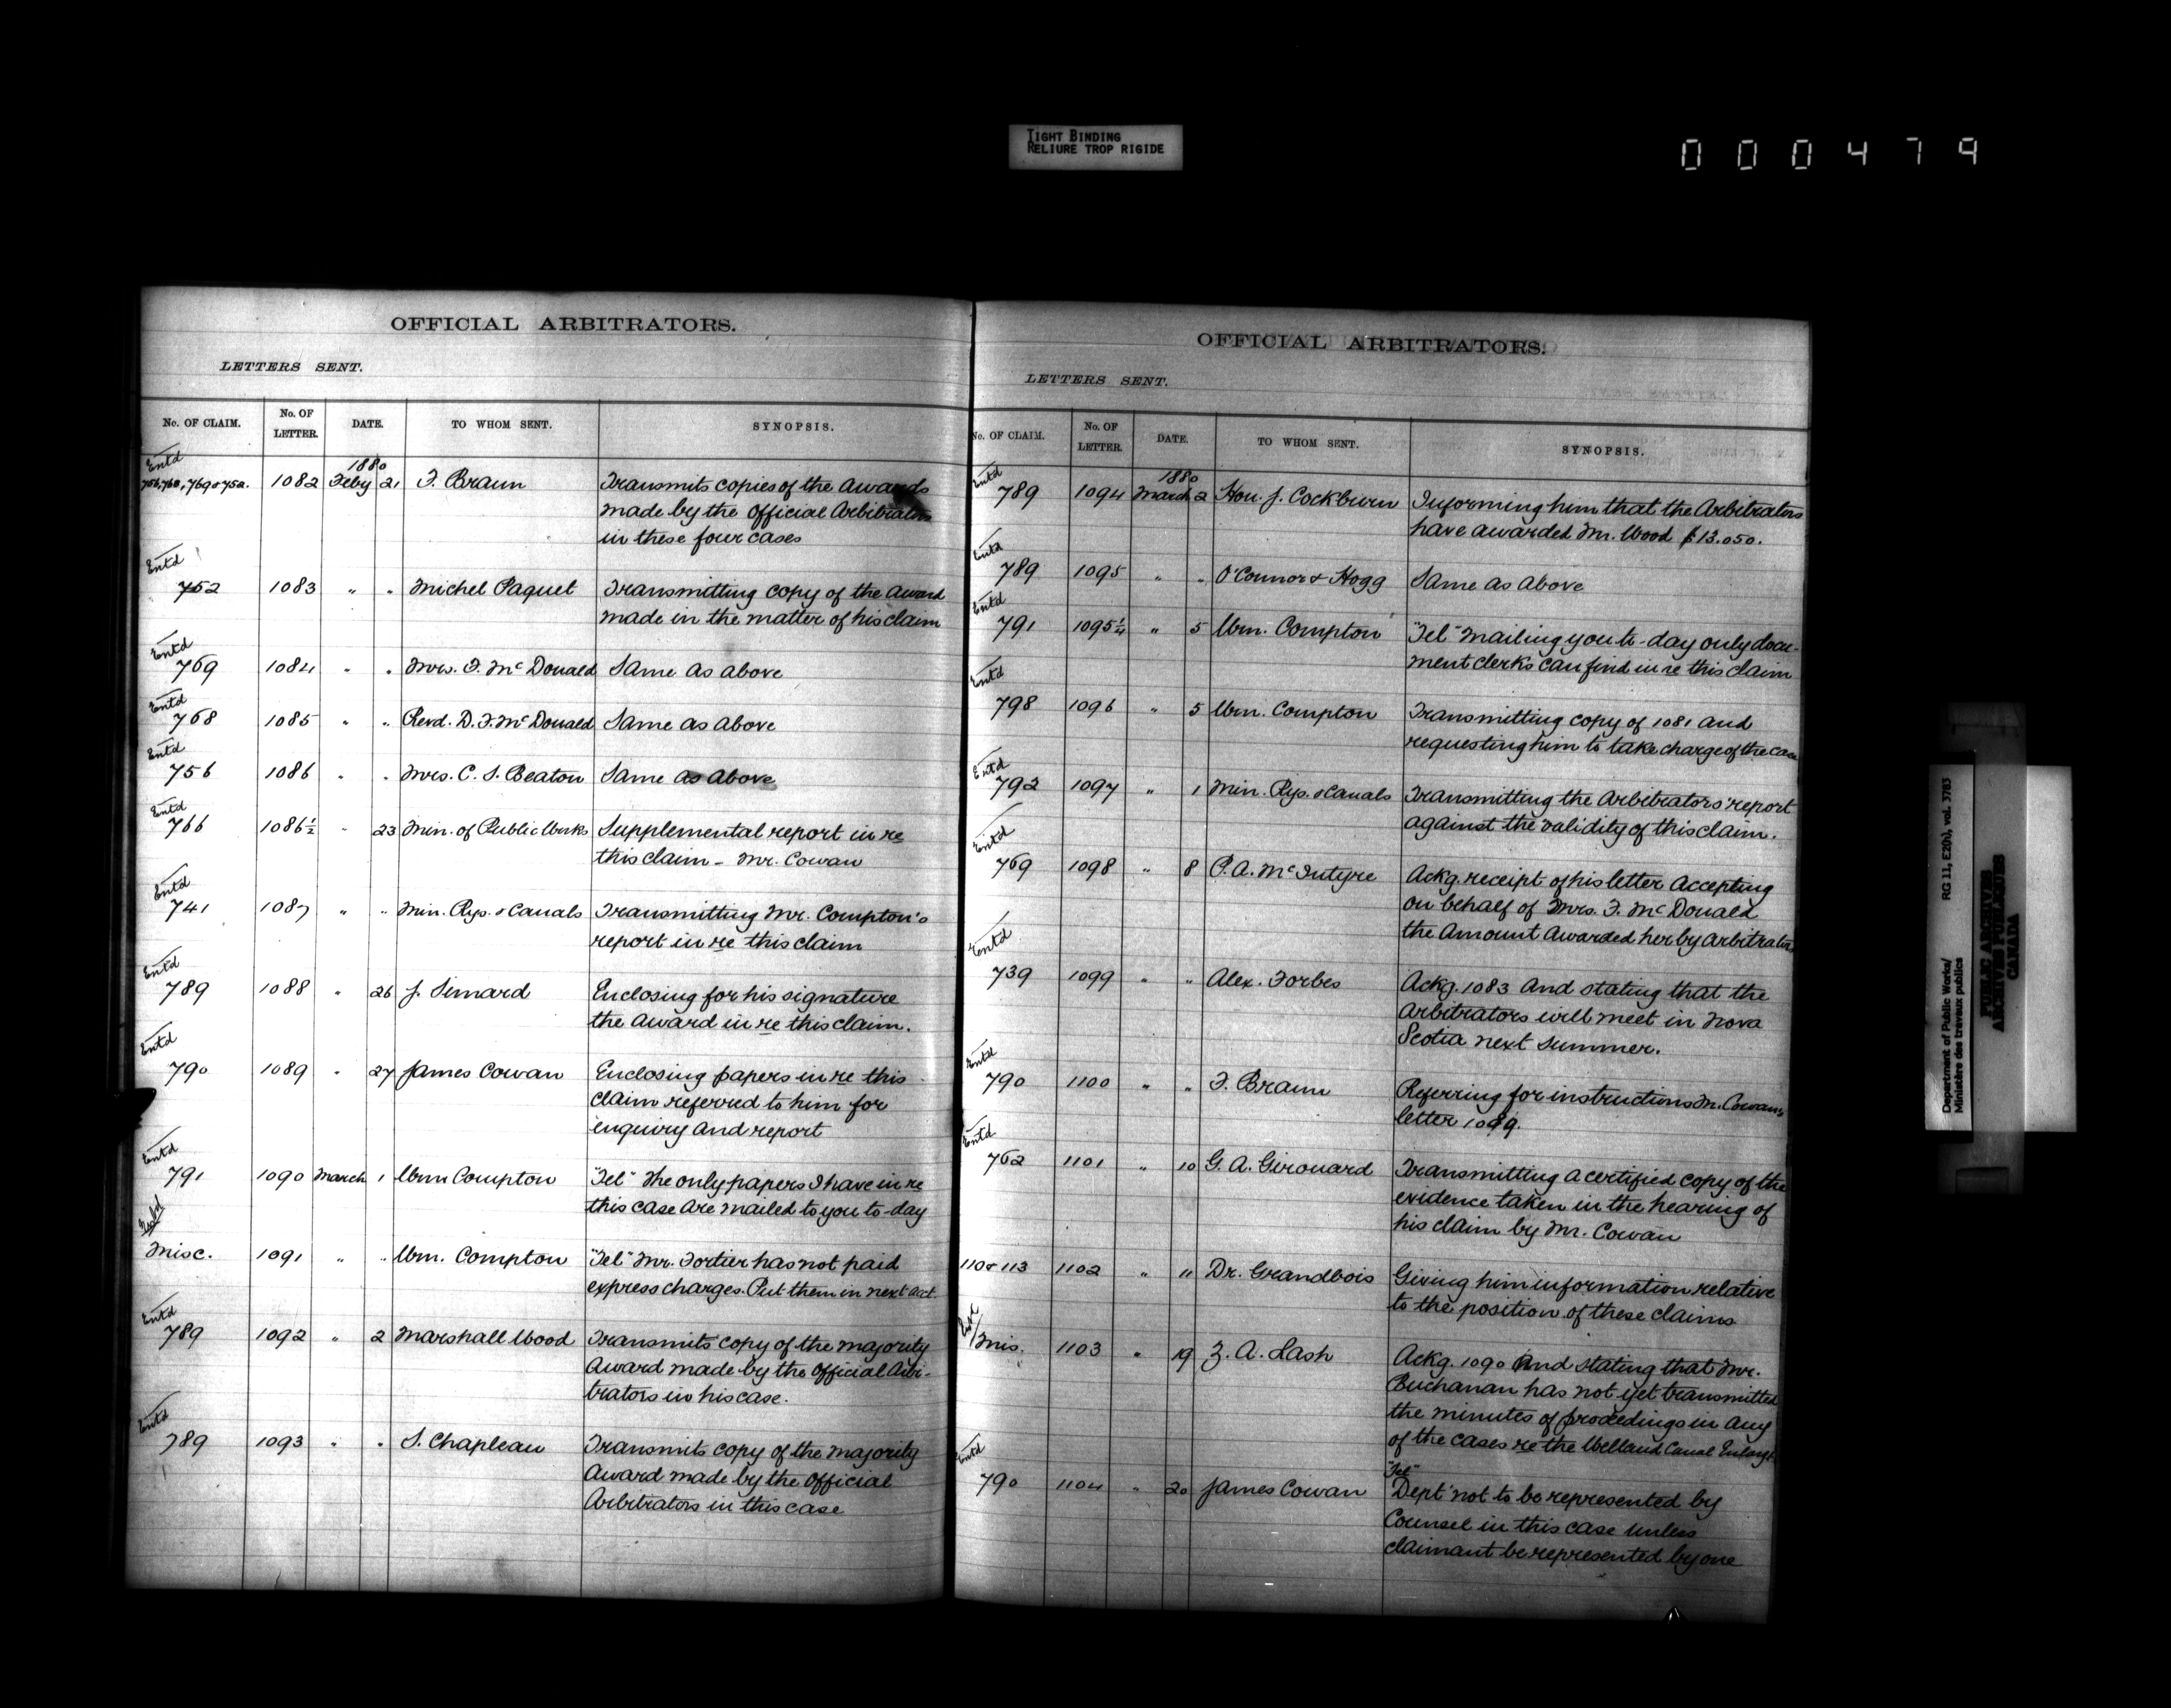 TIGHT BINDING
RELIURE TROP RIGIDE
000479
OFFICIAL ARBITRATORS.
LETTERS SENT.
No. OF CLAIM. No. OF LETTER. DATE. TO WHOM SENT. SYNOPSIS.
1880
Entd
756, 768, 769 & 752. 1082 Feby 21 F. Braun Transmits copies of the Awards
made by the Official Arbitrators
in these four cases
Entd
752 1083 " " Michel Paquet Transmitting copy of the Award
made in the matter of his claim
Entd
769 1084 " " Mrs. F. McDonald Same as above
Entd
768 1085 " " Revd. D. F. McDonald Same as above
Entd
756 1086 " " Mrs. C. S. Beaton Same as above
Entd
766 1086½ " 23 Min. of Public Works Supplemental report in re
this claim - Mr. Cowan
Entd
741 1087 " " Min. Rys. & Canals Transmitting Mr. Compton's
report in re this claim
Entd
789 1088 " 26 J. Simard Enclosing for his signature
the Award in re this claim.
Entd
790 1089 " 27 James Cowan Enclosing papers in re this
claim referred to him for
enquiry and report
Entd
791 1090 March 1 Wm Compton "Tel" The only papers I have in re
this case are mailed to you to-day
Entd
Misc. 1091 " " Wm. Compton "Tel" Mr. Fortier has not paid
express charges. Put them in next acct.
Entd
789 1092 " 2 Marshall Wood Transmits copy of the majority
Award made by the Official Arbi-
trators in his case.
Entd
789 1093 " " S. Chapleau Transmits copy of the majority
Award made by the Official
Arbitrators in this case
OFFICIAL ARBITRATORS.
LETTERS SENT.
No. OF CLAIM. No. OF LETTER. DATE. TO WHOM SENT. SYNOPSIS.
1880
Entd
789 1094 March 2 Hon. J. Cockburn Informing him that the Arbitrators
have awarded Mr. Wood $13.050.
Entd
789 1095 " " O'Connor & Hogg Same as above
Entd
791 1095¼ " 5 Wm. Compton "Tel" Mailing you to-day only docu-
ment clerks can find in re this claim
Entd
798 1096 " 5 Wm. Compton Transmitting copy of 1081 and
requesting him to take charge of the case
Entd
792 1097 " 1 Min. Rys. & Canals Transmitting the Arbitrators' report
against the validity of this claim.
Entd
769 1098 " 8 P. A. McIntyre Ackg. receipt of his letter accepting
on behalf of Mrs. F. McDonald
the amount awarded her by Arbitrators
Entd
739 1099 " " Alex. Forbes Ackg. 1083 and stating that the
Arbitrators will meet in Nova
Scotia next summer.
Entd
790 1100 " " F. Braun Referring for instructions Mr. Cowan's
letter 1099.
Entd
762 1101 " 10 G. A. Girouard Transmitting a certified copy of the
evidence taken in the hearing of
his claim by Mr. Cowan
110 & 113 1102 " 11 Dr. Grandbois Giving him information relative
to the position of these claims
Entd
Mis. 1103 " 19 Z. A. Lash Ackg. 1090 and stating that Mr.
Buchanan has not yet transmitted
the minutes of proceedings in any
of the cases re the Welland Canal Enlargt.
Entd
"Tel"
790 1104 " 20 James Cowan Dept not to be represented by
Counsel in this case unless
claimant be represented by one
Department of Public Works/
Ministère des travaux publics
RG 11, E2(b), vol. 3783
PUBLIC ARCHIVES
ARCHIVES PUBLIQUES
CANADA